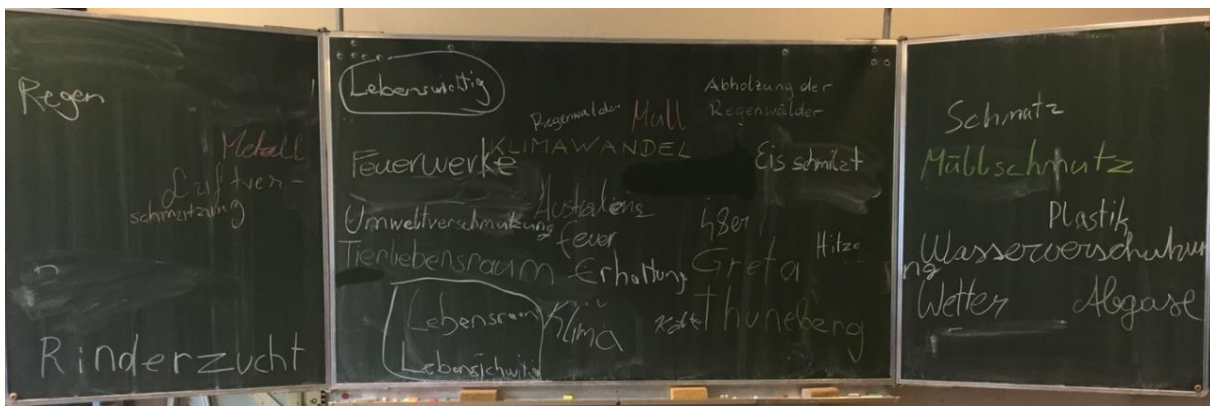 Regen
Metall
Luftver-
schmutzung
Rinderzucht
Lebenswichtig
Regenwälder
Müll
Abholzung der
Regenwälder
KLIMAWANDEL
Feuerwerke
Eis schmilzt
Australiens
feuer
Umweltverschmutzung
Hitze
Tierlebensraum
Erhaltung
Greta
Thuneberg
Lebensraum
Klima
Kälte
Schmutz
Müllschmutz
Plastik
Wasserverschuhun
ng
Wetter
Abgase